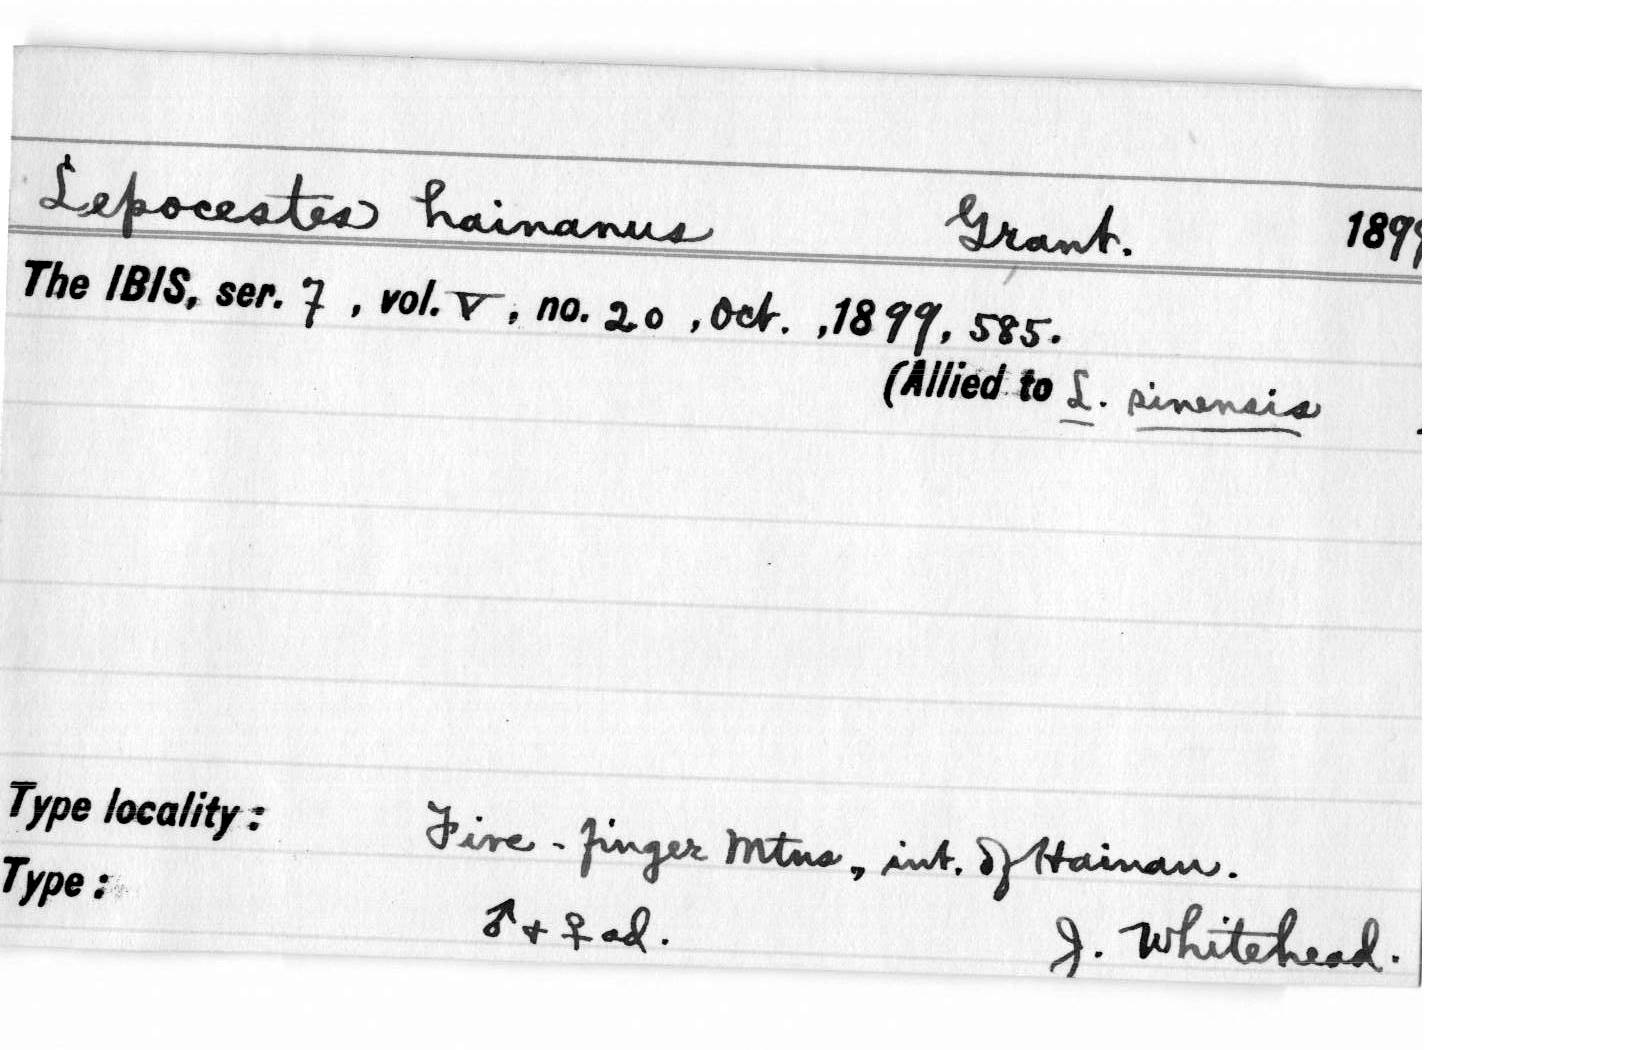 Lepocestes hainanus Grant. 1899
The IBIS, ser. 7, vol. V, no. 20, Oct., 1899, 585.
(Allied to L. sinensis
Type locality: Five-finger Mtns, int. of Hainan.
Type: ♂ + ♀ ad. J. Whitehead.